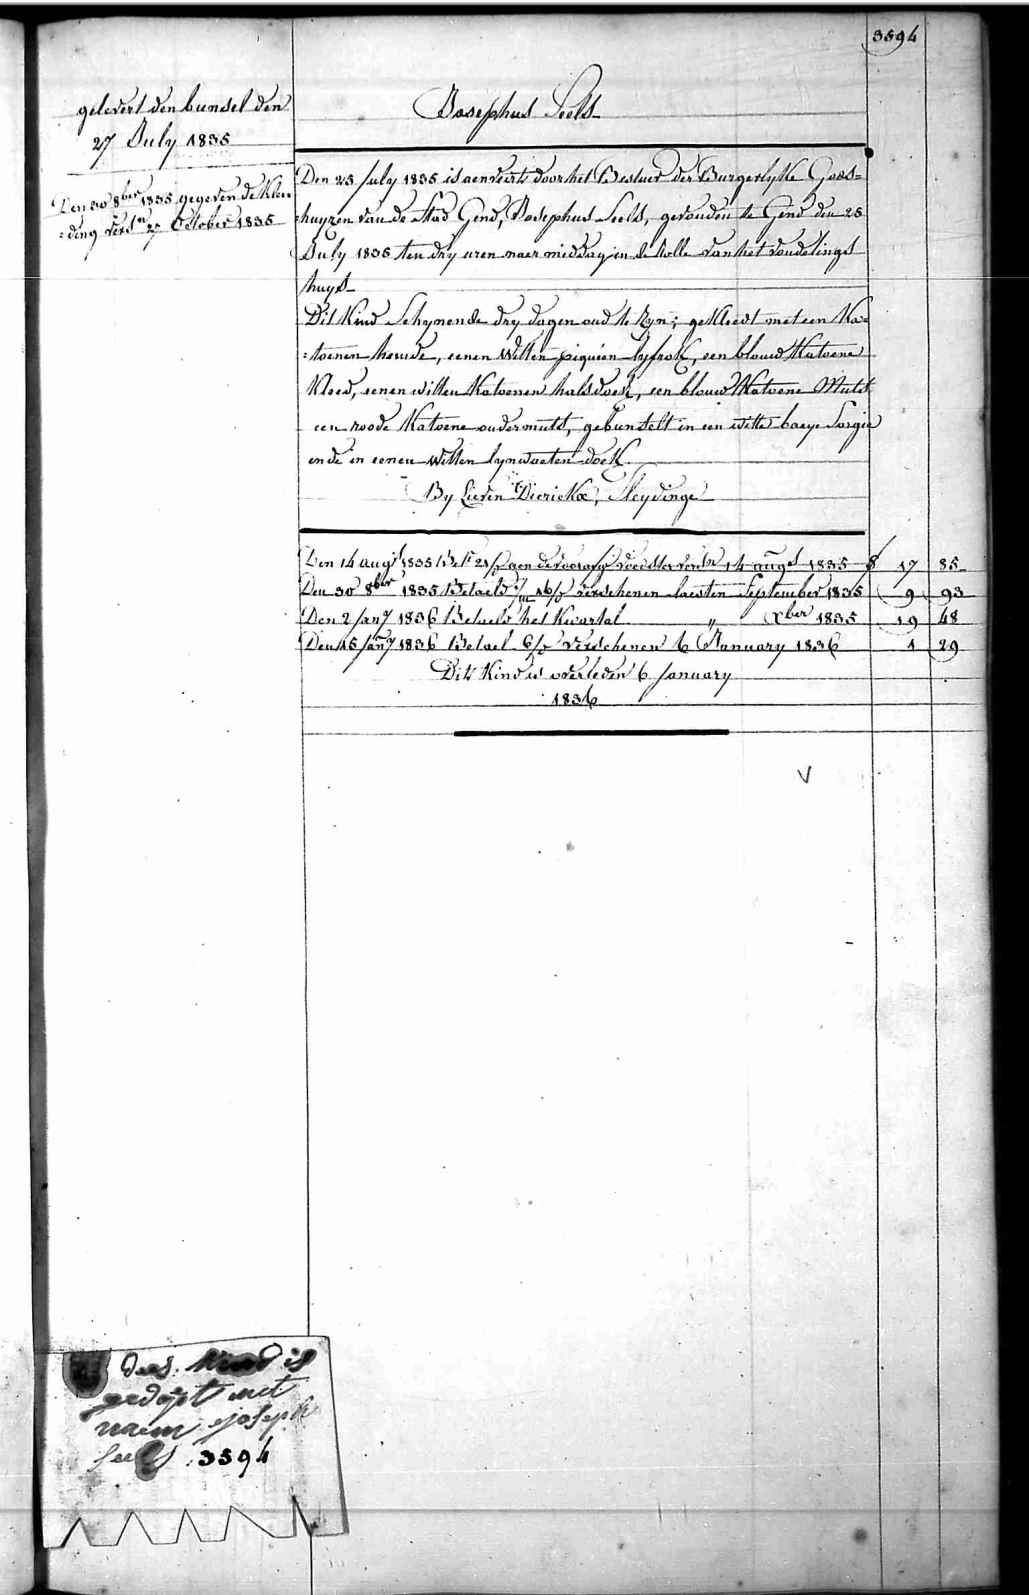 3594
gelevert den bunsel den
27 July 1835
Den 30 8ber 1835 gegeven de Klee-
=ding vers.n 27 October 1835
Josephus Seels
Den 25 July 1835 is aenveirt door het Bestuer der Burgerlyke Gods=
=huyzen van de Stad Gend, Josephus Seels, gevonden te Gend den 25
July 1835 ten dry uren naer middag in de Rolle van het vondelings
huys
Dit Kind Schynende dry dagen oud te zyn; gekleedt met een Ka=
=toenen hemde, eenen witten piquéen lyfrok, een blauw Katoene
Kleed, eenen witten Katoenen halsdoek, een blauw Katoene Muts
een roode Katoene ondermuts, gebunselt in een witte baeye Sargie
ende in eenen witten lynwaeten doek
By Lieven Dierickx, Sleydinge
Den 14 augt 1835 Bet. 21/ aen de voedster 14 augst 1835 17 85
Den 30 8ber 1835 Betaeld verschenen laesten September 1835 9 93
Den 2 Jany 1836 Betaeld het Kwartal " Xber 1835 19 48
Den 15 Jany 1836 Betael 6/ verschenen 6 January 1836 1 29
Dit Kind is overleden 6 January
1836
V
dees Kind is
gedopt met
naem joseph
seels 3594